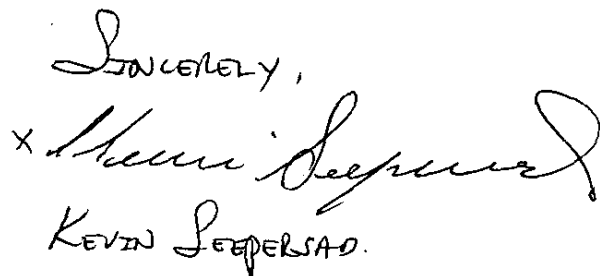 Sincerely,
x Kevin Seepersad
Kevin Seepersad.